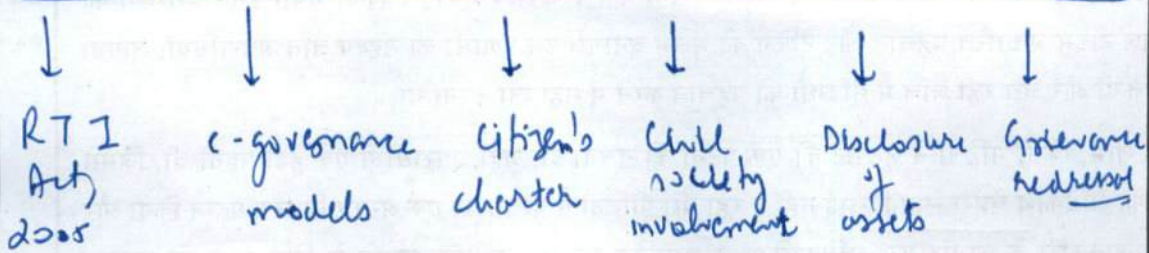 RTI Act, 2005
e-governance models
Citizen's charter
Civil society involvement
Disclosure of assets
Grievance redressal